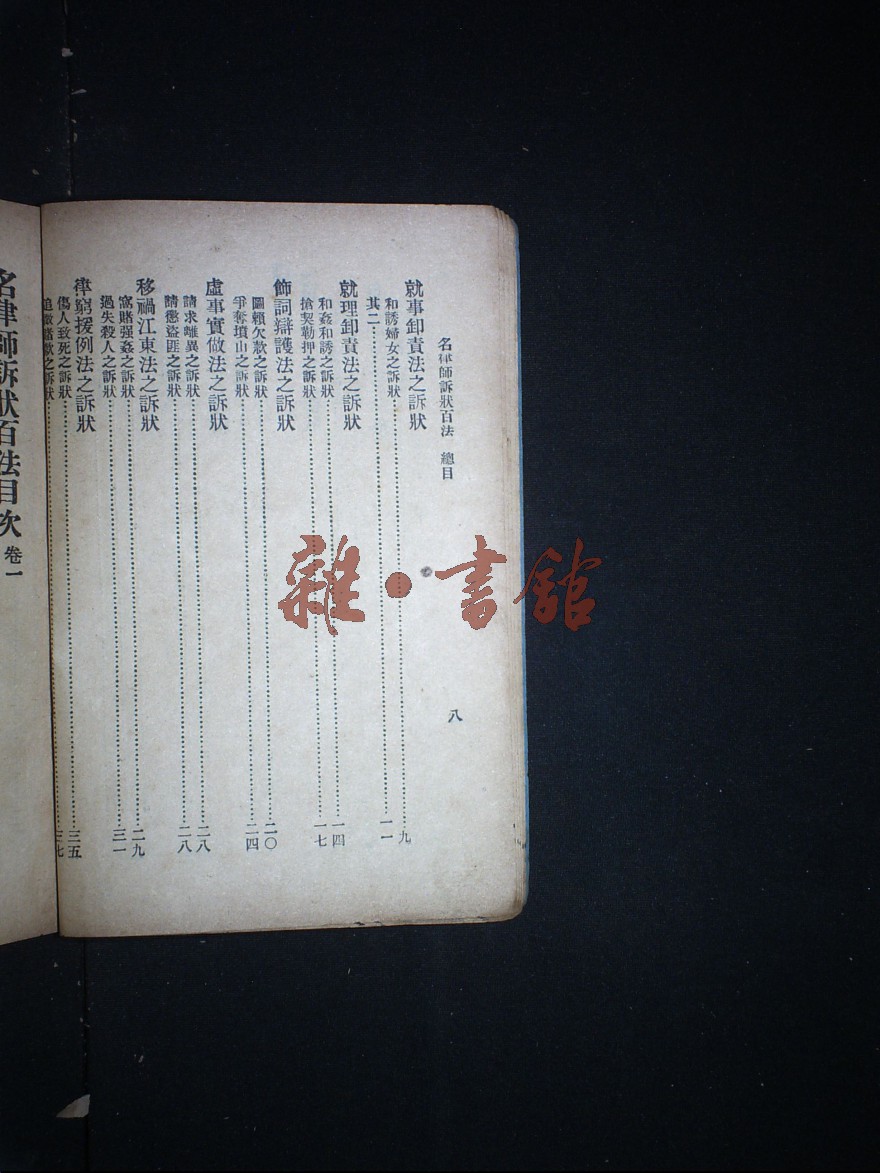 名律師訴狀百法 總目
八
就事卸責法之訴狀
和誘婦女之訴狀……九
其二……一一
就理卸責法之訴狀
和姦和誘之訴狀……一四
搶契勒押之訴狀……一七
飾詞辯護法之訴狀
圖賴欠款之訴狀……二〇
爭奪墳山之訴狀……二四
虛事實做法之訴狀
請求離異之訴狀……二八
請懲盜匪之訴狀……二八
移禍江東法之訴狀
窩賭强姦之訴狀……二九
過失殺人之訴狀……三一
律窮援例法之訴狀
傷人致死之訴狀……三五
之訴狀……三七
名律師訴狀百法目次 卷一
雜·書館